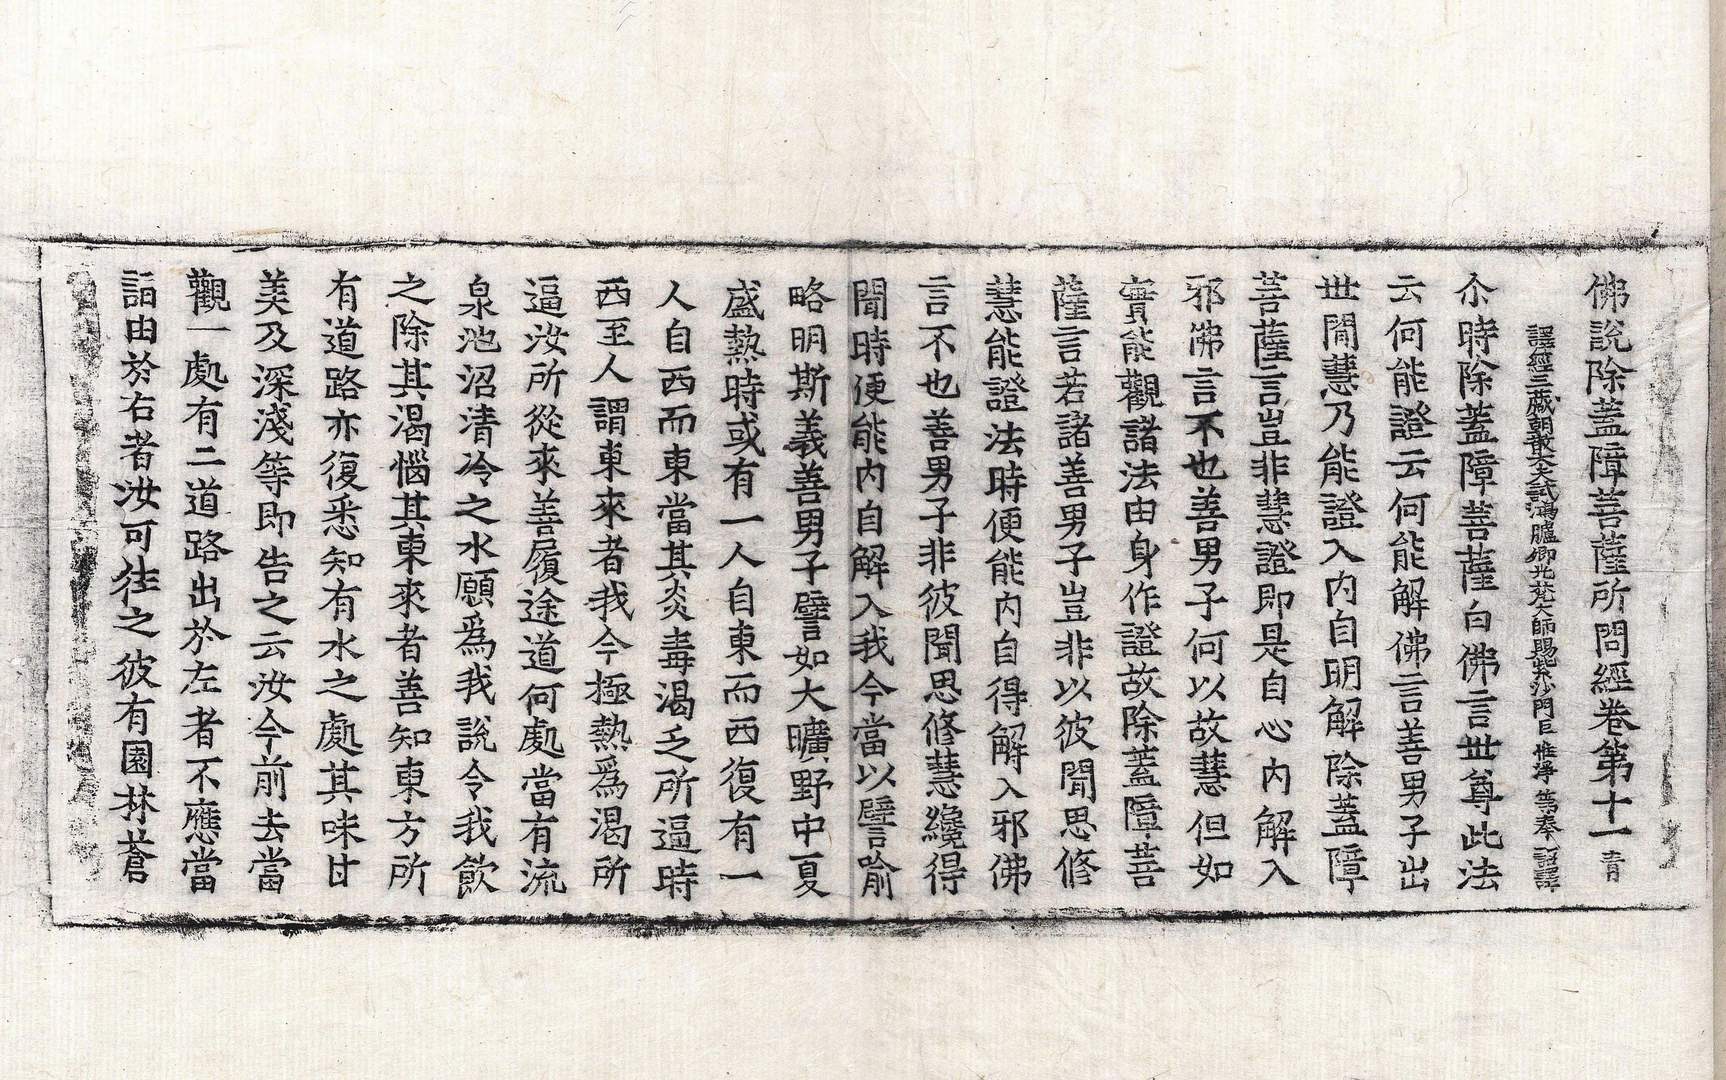 佛說除蓋障菩薩所問經卷第十一 青
譯經三藏朝散大夫試鴻臚卿光梵大師賜紫沙門臣 惟淨 等奉 詔譯
尒時除蓋障菩薩白佛言世尊此法
云何能證云何能解佛言善男子出
世閒慧乃能證入內自明解除蓋障
菩薩言豈非慧證即是自心內解入
邪佛言不也善男子何以故慧但如
實能觀諸法由身作證故除蓋障菩
薩言若諸善男子豈非以彼聞思修
慧能證法時便能內自得解入邪佛
言不也善男子非彼聞思修慧纔得
聞時便能內自解入我今當以譬喻
略明斯義善男子譬如大曠野中夏
盛熱時或有一人自東而西復有一
人自西而東當其炎毒渴乏所逼時
西至人謂東來者我今極熱爲渴所
逼汝所從來善履途道何處當有流
泉池沼清冷之水願爲我說令我飮
之除其渴惱其東來者善知東方所
有道路亦復悉知有水之處其味甘
美及深淺等即告之云汝今前去當
觀一處有二道路出於左者不應當
詣由於右者汝可往之彼有園林蒼